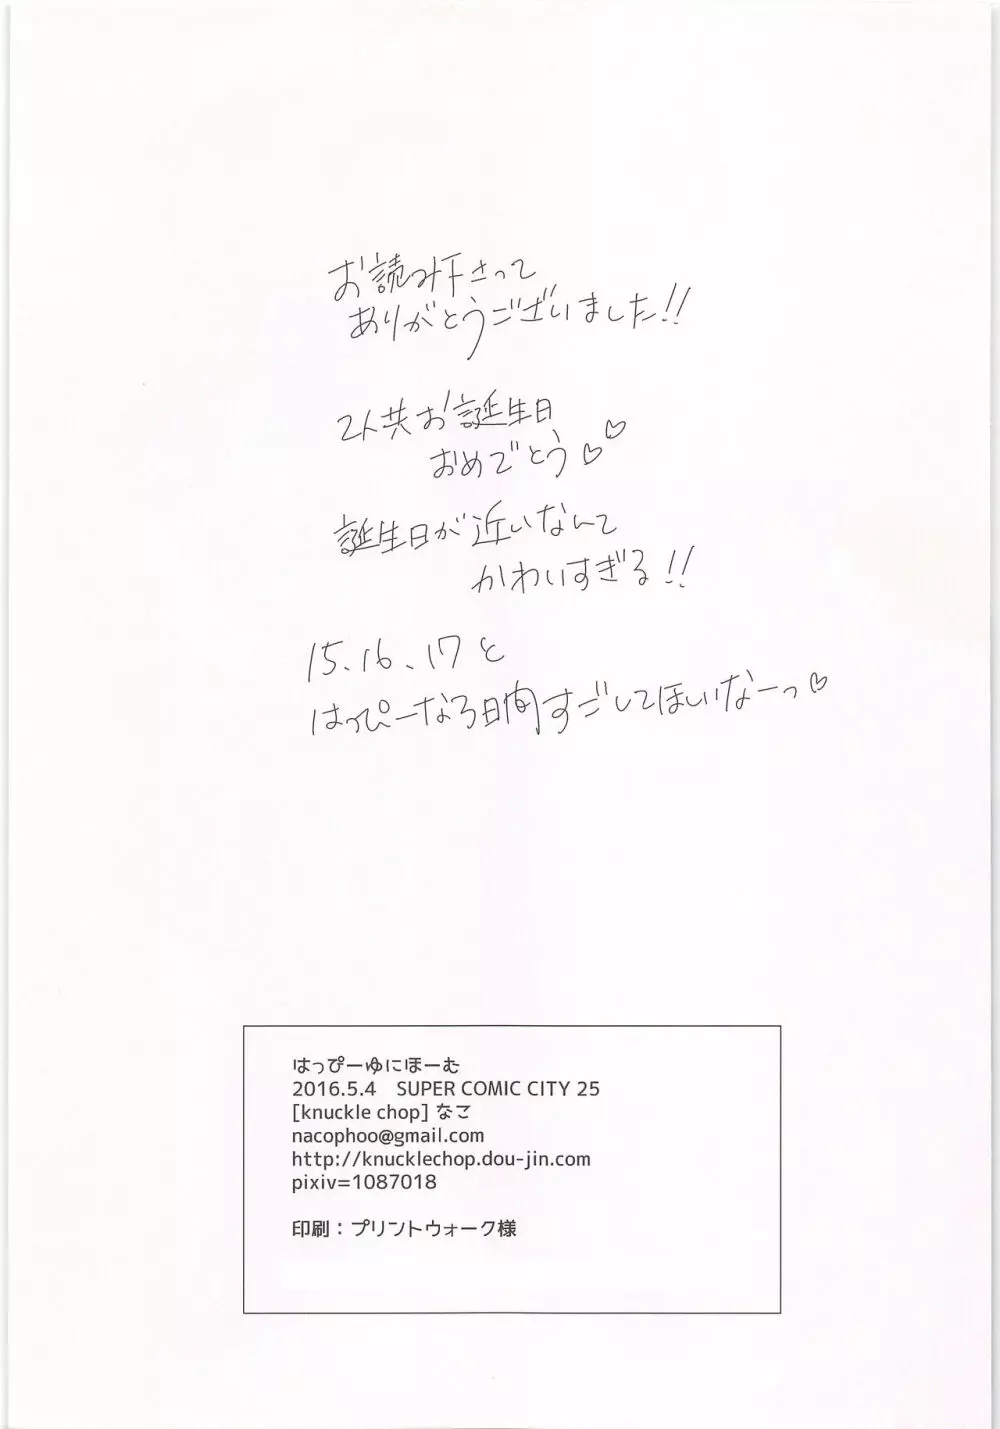 お読み下さって
ありがとうございました!!
2人共お誕生日
おめでとう♡♡
誕生日が近いなんて
かわいすぎる!!
15、16、17と
はっぴーな3日間すごしてほしいなーっ♡
はっぴーゆにほーむ
2016.5.4 SUPER COMIC CITY 25
[knuckle chop] なこ
nacophoo@gmail.com
http://knucklechop.dou-jin.com
pixiv=1087018
印刷：プリントウォーク様